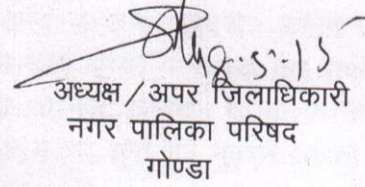 अध्यक्ष/अपर जिलाधिकारी
नगर पालिका परिषद
गोण्डा